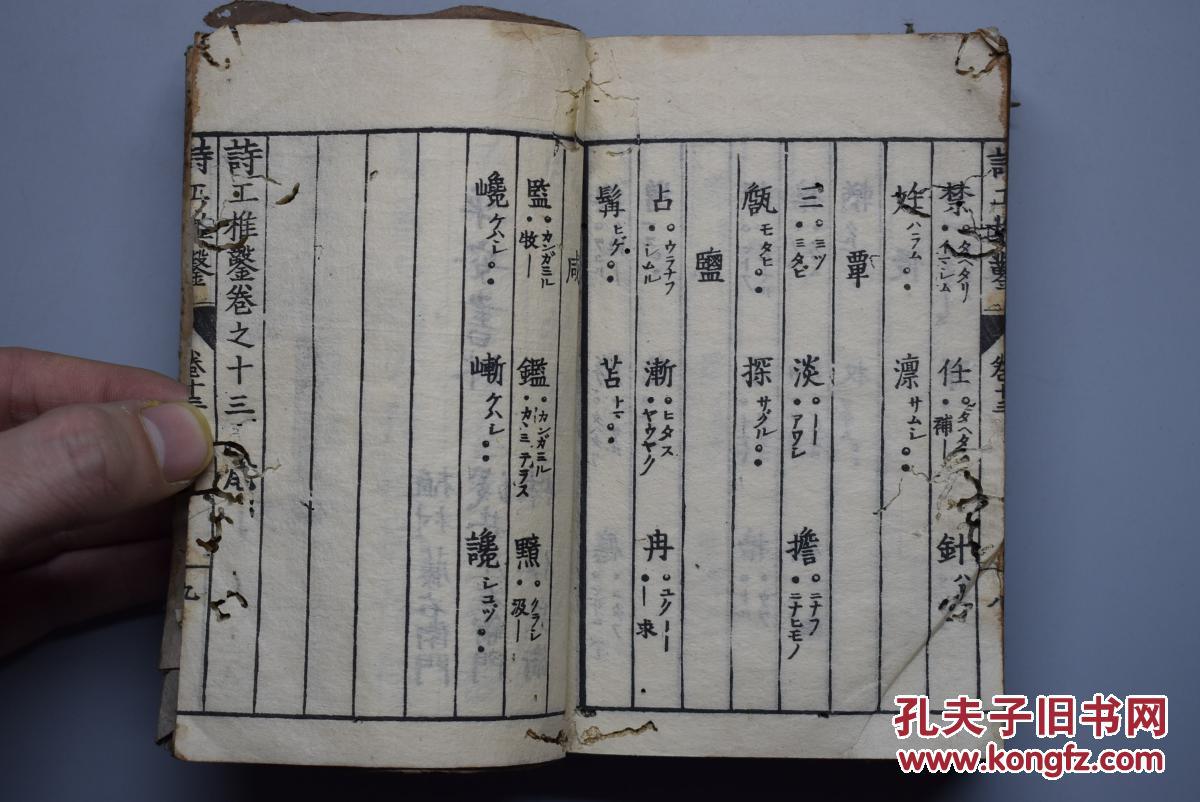 禁 ○タヘタリ ・イマシム 任 ・補｜ 針
妊 ハラム ○・ 凛 サムシ ○・
覃
三 ○ミツ ・ミタビ 淡 ○｜ ・アワシ 擔 ○ニナフ ・ニナヒモノ
甔 モタヒ ○・ 探 サグル ○・
鹽
占 ○ウラナフ ・シムル 漸 ○ヒタス ・ヤウヤク 冉 ○ユク｜｜ ・｜求
髯 ヒゲ ○・ 苫 トマ ○・
咸
監 ○カンガミル ・牧｜ 鑑 ○カンガミル ・カヾミ テラス 黯 ○クラシ ・汲｜
巉 ケハシ ○・ 嶃 ケハシ ○・ 讒 シコヅ ○・
詩工推鑿卷之十三
卷十三
九
孔夫子旧书网
www.kongfz.com